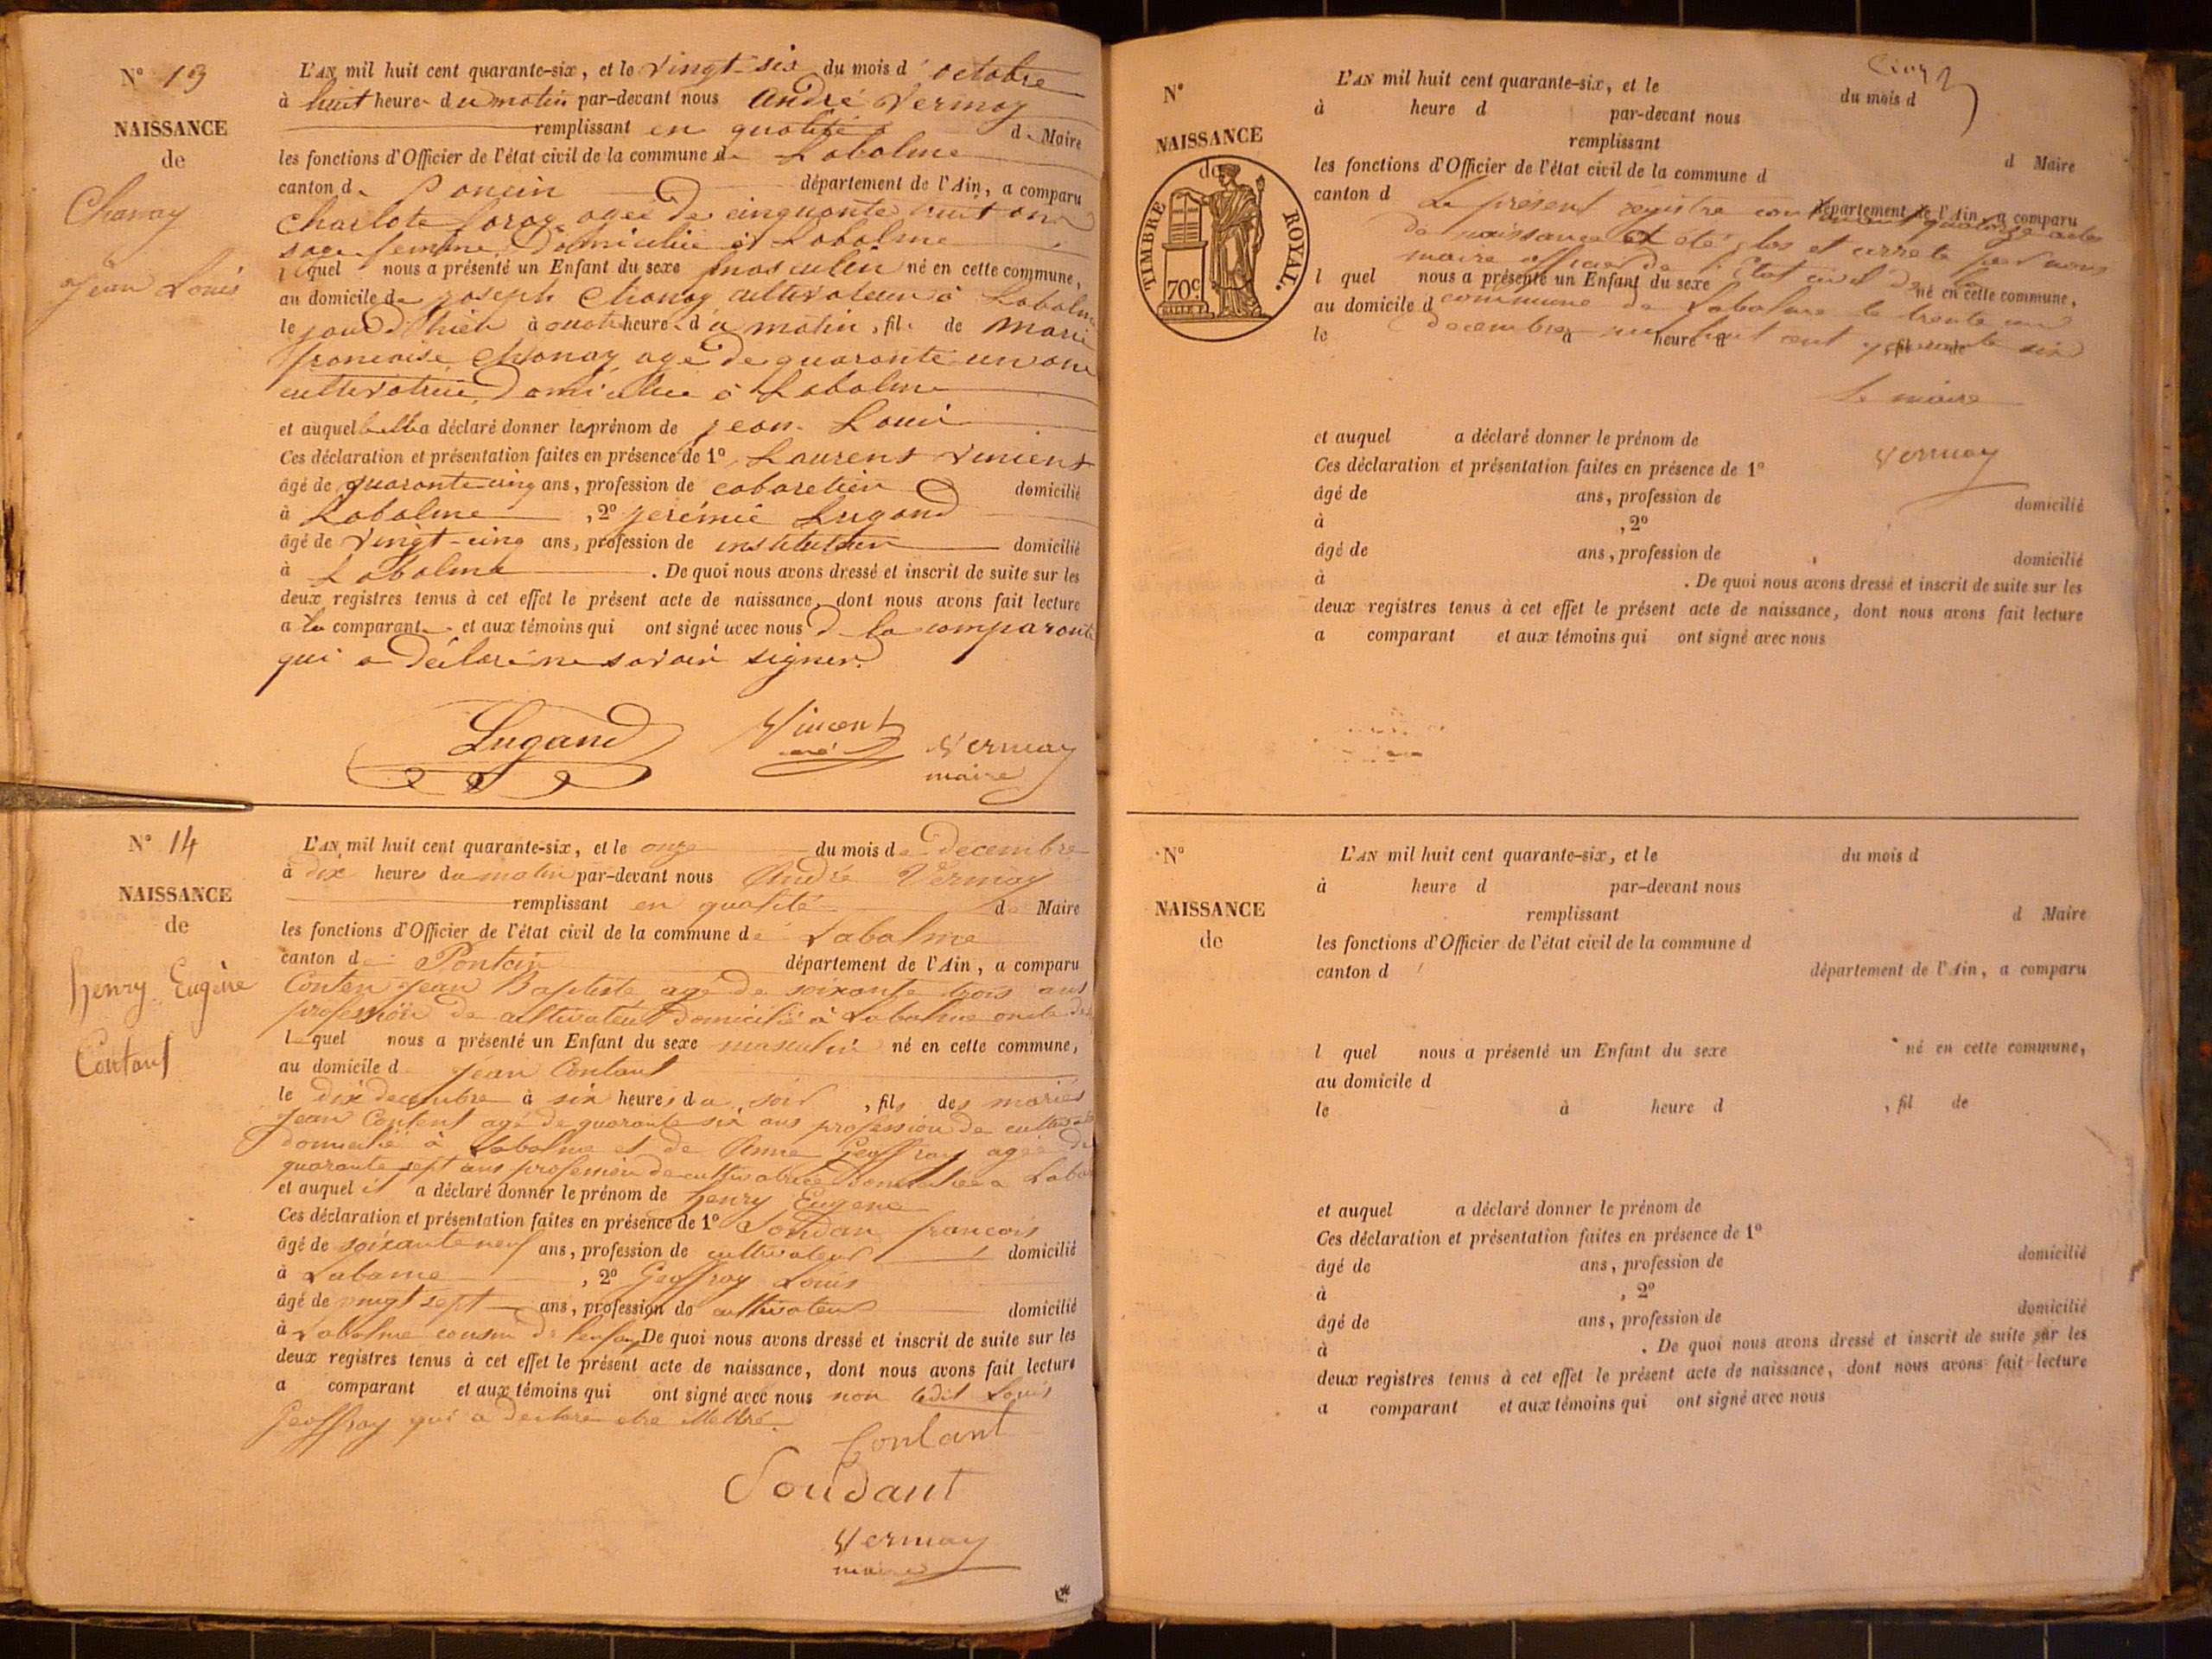 N° 13
NAISSANCE
de
Chanay
Jean Louis
L'AN mil huit cent quarante-six, et le vingt-six du mois d'octobre
à huit heure du matin par-devant nous André Vermay
remplissant en qualité de Maire
les fonctions d'Officier de l'état civil de la commune de Labalme
canton de Poncin département de l'Ain, a comparu
Charlote agée de cinquante huit ans
sage femme Domiciliée à Labalme
l quel nous a présenté un Enfant du sexe masculin né en cette commune,
au domicile de joseph Chanay cultivateur à Labalme
le jour d'hier à heure du matin, fil de Marie
francoise Chanay age de quarante un ans
cultivatrice Domiciliée à Labalme
et auquel elle a déclaré donner le prénom de jean Louis
Ces déclaration et présentation faites en présence de 1° Laurent Vincent
âgé de quarante cinq ans, profession de cabaretier domicilié
à Labalme, 2° jérémie Lugand
âgé de vingt-cinq ans, profession de instituteur domicilié
à Labalme. De quoi nous avons dressé et inscrit de suite sur les
deux registres tenus à cet effet le présent acte de naissance, dont nous avons fait lecture
a la comparante et aux témoins qui ont signé avec nous la comparante
qui a déclaré ne savoir signer.
Lugand Vincent Vermay
maire
N° 14
NAISSANCE
de
henry Eugène
Contant
L'AN mil huit cent quarante-six, et le onze du mois de decembre
à dix heures du matin par-devant nous André Vermay
remplissant en qualité de Maire
les fonctions d'Officier de l'état civil de la commune de Labalme
canton de Poncin département de l'Ain, a comparu
Jean Baptiste agé de soixante trois ans
profession de cultivateur domicilié à Labalme oncle
lequel nous a présenté un Enfant du sexe masculin né en cette commune,
au domicile d Jean Contant
le dix decembre à six heures du soir, fils des mariés
Jean Contant agé de quarante six ans profession de
domicilié à Labalme et de Anne Geoffray agée de
quarante sept ans profession de cultivatrice domiciliée à
et auquel il a déclaré donner le prénom de henry Eugene
Ces déclaration et présentation faites en présence de 1° Soudan francois
âgé de soixante neuf ans, profession de cultivateur domicilié
à Labame, 2° Geoffray Louis
âgé de vingt sept ans, profession de cultivateur domicilié
à Labalme cousin de l'enfan De quoi nous avons dressé et inscrit de suite sur les
deux registres tenus à cet effet le présent acte de naissance, dont nous avons fait lecture
a comparant et aux témoins qui ont signé avec nous non ledit Louis
Geoffray qui a declare etre illettré.
Contant
Soudant
Vermay
maire
N°
NAISSANCE
de
TIMBRE ROYAL.
70c
L'AN mil huit cent quarante-six, et le du mois d
à heure d par-devant nous
remplissant d Maire
les fonctions d'Officier de l'état civil de la commune d
canton d département de l'Ain, a comparu
Le présent registre contenant quatorze actes
de naissance et été clos et arrete par nous
maire officier de l'Etat civil de la
l quel nous a présenté un Enfant du sexe né en cette commune,
au domicile d
commune de Labalme le trente un
decembre mil huit cent quarante six
le à heure d, fil de
Le maire
et auquel a déclaré donner le prénom de
Vermay
Ces déclaration et présentation faites en présence de 1°
âgé de ans, profession de domicilié
à, 2°
âgé de ans, profession de domicilié
à. De quoi nous avons dressé et inscrit de suite sur les
deux registres tenus à cet effet le présent acte de naissance, dont nous avons fait lecture
a comparant et aux témoins qui ont signé avec nous
N°
NAISSANCE
de
L'AN mil huit cent quarante-six, et le du mois d
à heure d par-devant nous
remplissant d Maire
les fonctions d'Officier de l'état civil de la commune d
canton d département de l'Ain, a comparu
l quel nous a présenté un Enfant du sexe né en cette commune,
au domicile d
le à heure d, fil de
et auquel a déclaré donner le prénom de
Ces déclaration et présentation faites en présence de 1°
âgé de ans, profession de domicilié
à, 2°
âgé de ans, profession de domicilié
à. De quoi nous avons dressé et inscrit de suite sur les
deux registres tenus à cet effet le présent acte de naissance, dont nous avons fait lecture
a comparant et aux témoins qui ont signé avec nous